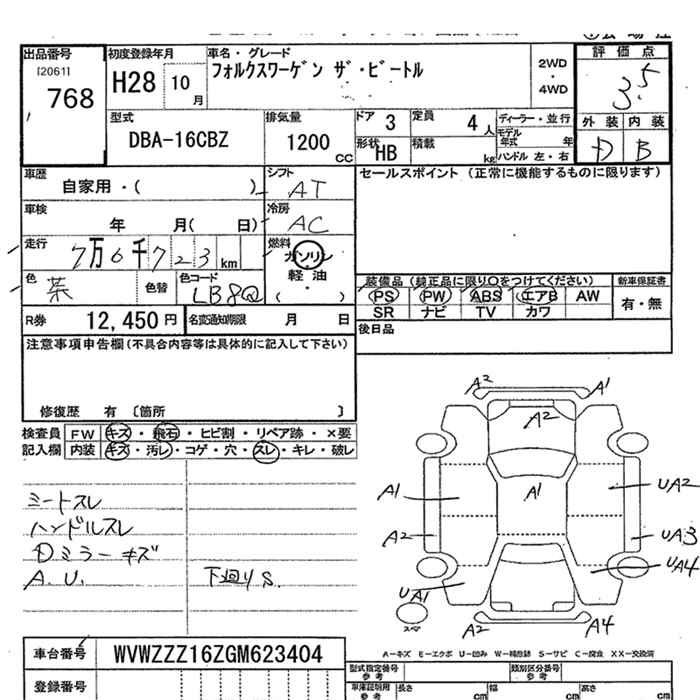 出品番号
[20611]
768
初度登録年月
H28 10月
車名・グレード
フォルクスワーゲン ザ・ビートル
2WD
・
4WD
評価点
3.5
外装 内装
D B
型式
DBA-16CBZ
排気量
1200 CC
ドア 3
定員 4人
形状 HB
積載 kg
ディーラー・並行
モデル年式 年
ハンドル 左・右
車歴
自家用・( )
シフト
AT
セールスポイント (正常に機能するものに限ります)
車検
年 月( 日)
冷房
AC
走行
7万6千723 km
燃料
ガソリン
軽油
( ・ )
色
茶
色替
色コード
LB8Q
装備品 (純正品に限り○をつけてください)
PS PW ABS エアB AW
SR ナビ TV カワ
新車保証書
有・無
R券 12,450円
名変通知期限 月 日
後日品
注意事項申告欄(不具合内容等は具体的に記入して下さい)
修復歴 有 〔箇所 〕
検査員
記入欄
FW キズ・飛石・ヒビ割・リペア跡・×要
内装 キズ・汚レ・コゲ・穴・スレ・キレ・破レ
シートスレ
ハンドルスレ
Dミラーキズ
A.U.
下廻りS.
A2
A1
A2
A1
A1
UA2
A2
UA3
UA4
UA1
スペア
A2
A4
車台番号 WVWZZZ16ZGM623404
A-キズ E-エクボ U-凹ミ W-補修跡 S-サビ C-腐食 XX-交換済
登録番号
型式指定番号 類別区分番号
車庫証明用 長さ cm 幅 cm 高さ cm
参考